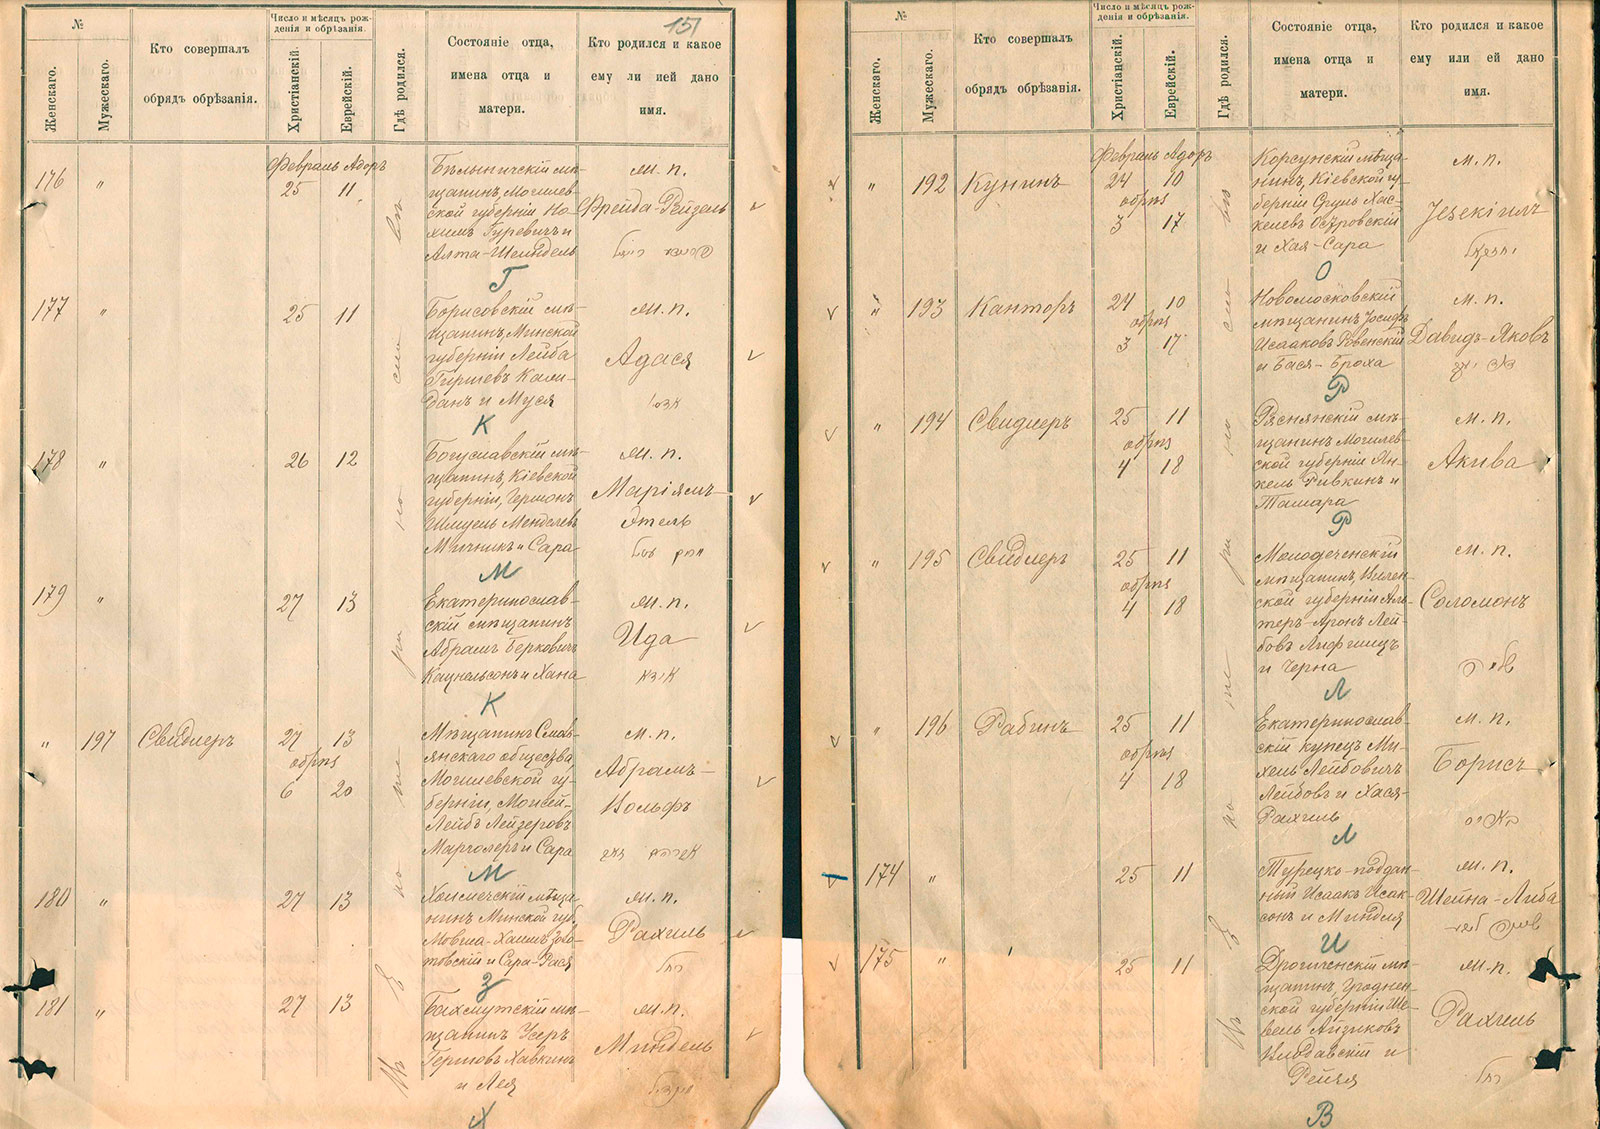 151
№
Женскаго.
Мужескаго.
Кто совершалъ
обрядъ обрѣзанія.
Число и мѣсяцъ рож-
денія и обрѣзанія.
Христіанскій.
Еврейскій.
Гдѣ родился.
Состояніе отца,
имена отца и
матери.
Кто родился и какое
ему ли ией дано
имя.
Февраль Адоръ
176 " 25 11
Бѣлыничскій мѣ-
щанинъ, Могилев-
ской губерніи Но-
химъ Гуревичъ и
Алта-Шейндель
м. п.
Фрейда-Рейзель
Г
177 " 25 11
Борисовскій мѣ-
щанинъ, Минской
губерніи Лейба
Гиршевъ
и Муся
м. п.
Адася
К
178 " 26 12
Богуславскій мѣ-
щанинъ, Кіевской
губерніи,
Шмуель Менделевъ
и Сара
м. п.
Маріямъ-
Этель
М
179 " 27 13
Екатеринослав-
скій мѣщанинъ
Абрамъ Берковичъ
Кацнельсонъ и Хана
м. п.
Ида
К
" 197 Свидлеръ 27 13
обрѣз
6 20
Мѣщанинъ
общества,
Могилевской гу-
берніи, Моисей-
Лейбъ Лейзеровъ
и Сара
м. п.
Абрамъ-
Вольфъ
М
180 " 27 13
мѣща-
нинъ Минской губ.
Мовша-Хаимъ
и Сара-Рася
м. п.
Рахиль
רחל
З
181 " 27 13
Бахмутскій мѣ-
щанинъ Усеръ
Гершовъ Хавкинъ
и Лея
м. п.
Миндель
Х
№
Женскаго.
Мужескаго.
Кто совершалъ
обрядъ обрѣзанія.
Число и мѣсяцъ рож-
денія и обрѣзанія.
Христіанскій.
Еврейскій.
Гдѣ родился.
Состояніе отца,
имена отца и
матери.
Кто родился и какое
ему или ей дано
имя.
Февраль Адоръ
" 192 Кунинъ 24 10
обрѣз
3 17
Корсунскій мѣща-
нинъ, Кіевской гу-
берніи Сруль Хас-
келевъ Островскій
и Хая-Сара
м. п.
Іезекіиль
О
" 193 Канторъ 24 10
обрѣз
3 17
Новомосковскій
мѣщанинъ Іосифъ
Исааковъ Ровенскій
и Бася-Броха
м. п.
Давидъ-Яковъ
Р
" 194 Свидлеръ 25 11
обрѣз
4 18
Рѣснянскій мѣ-
щанинъ Могилев-
ской губерніи Ян-
кель Ривкинъ и
Тамара
м. п.
Акива
Р
" 195 Свидлеръ 25 11
обрѣз
4 18
Молодеченскій
мѣщанинъ, Вилен-
ской губерніи Аль-
теръ-Аронъ Лей-
бовъ Лифшицъ
и Черна
м. п.
Соломонъ
Л
" 196 Рабинъ 25 11
обрѣз
4 18
Екатеринослав-
скій купецъ Ми-
хель Лейбовичъ
Лейбовъ и Хася-
Рахиль
м. п.
Борисъ
Л
174 " 25 11
Турецко-поддан-
ный Исаакъ Исак-
сонъ и Миндля
м. п.
Шейна-Либа
И
175 " 25 11
Дрогиченскій мѣ-
щанинъ, Гроднен-
ской губерніи Ше-
вель Айзиковъ
Влодавскій и
Рейзя
м. п.
Рахиль
רחל
В